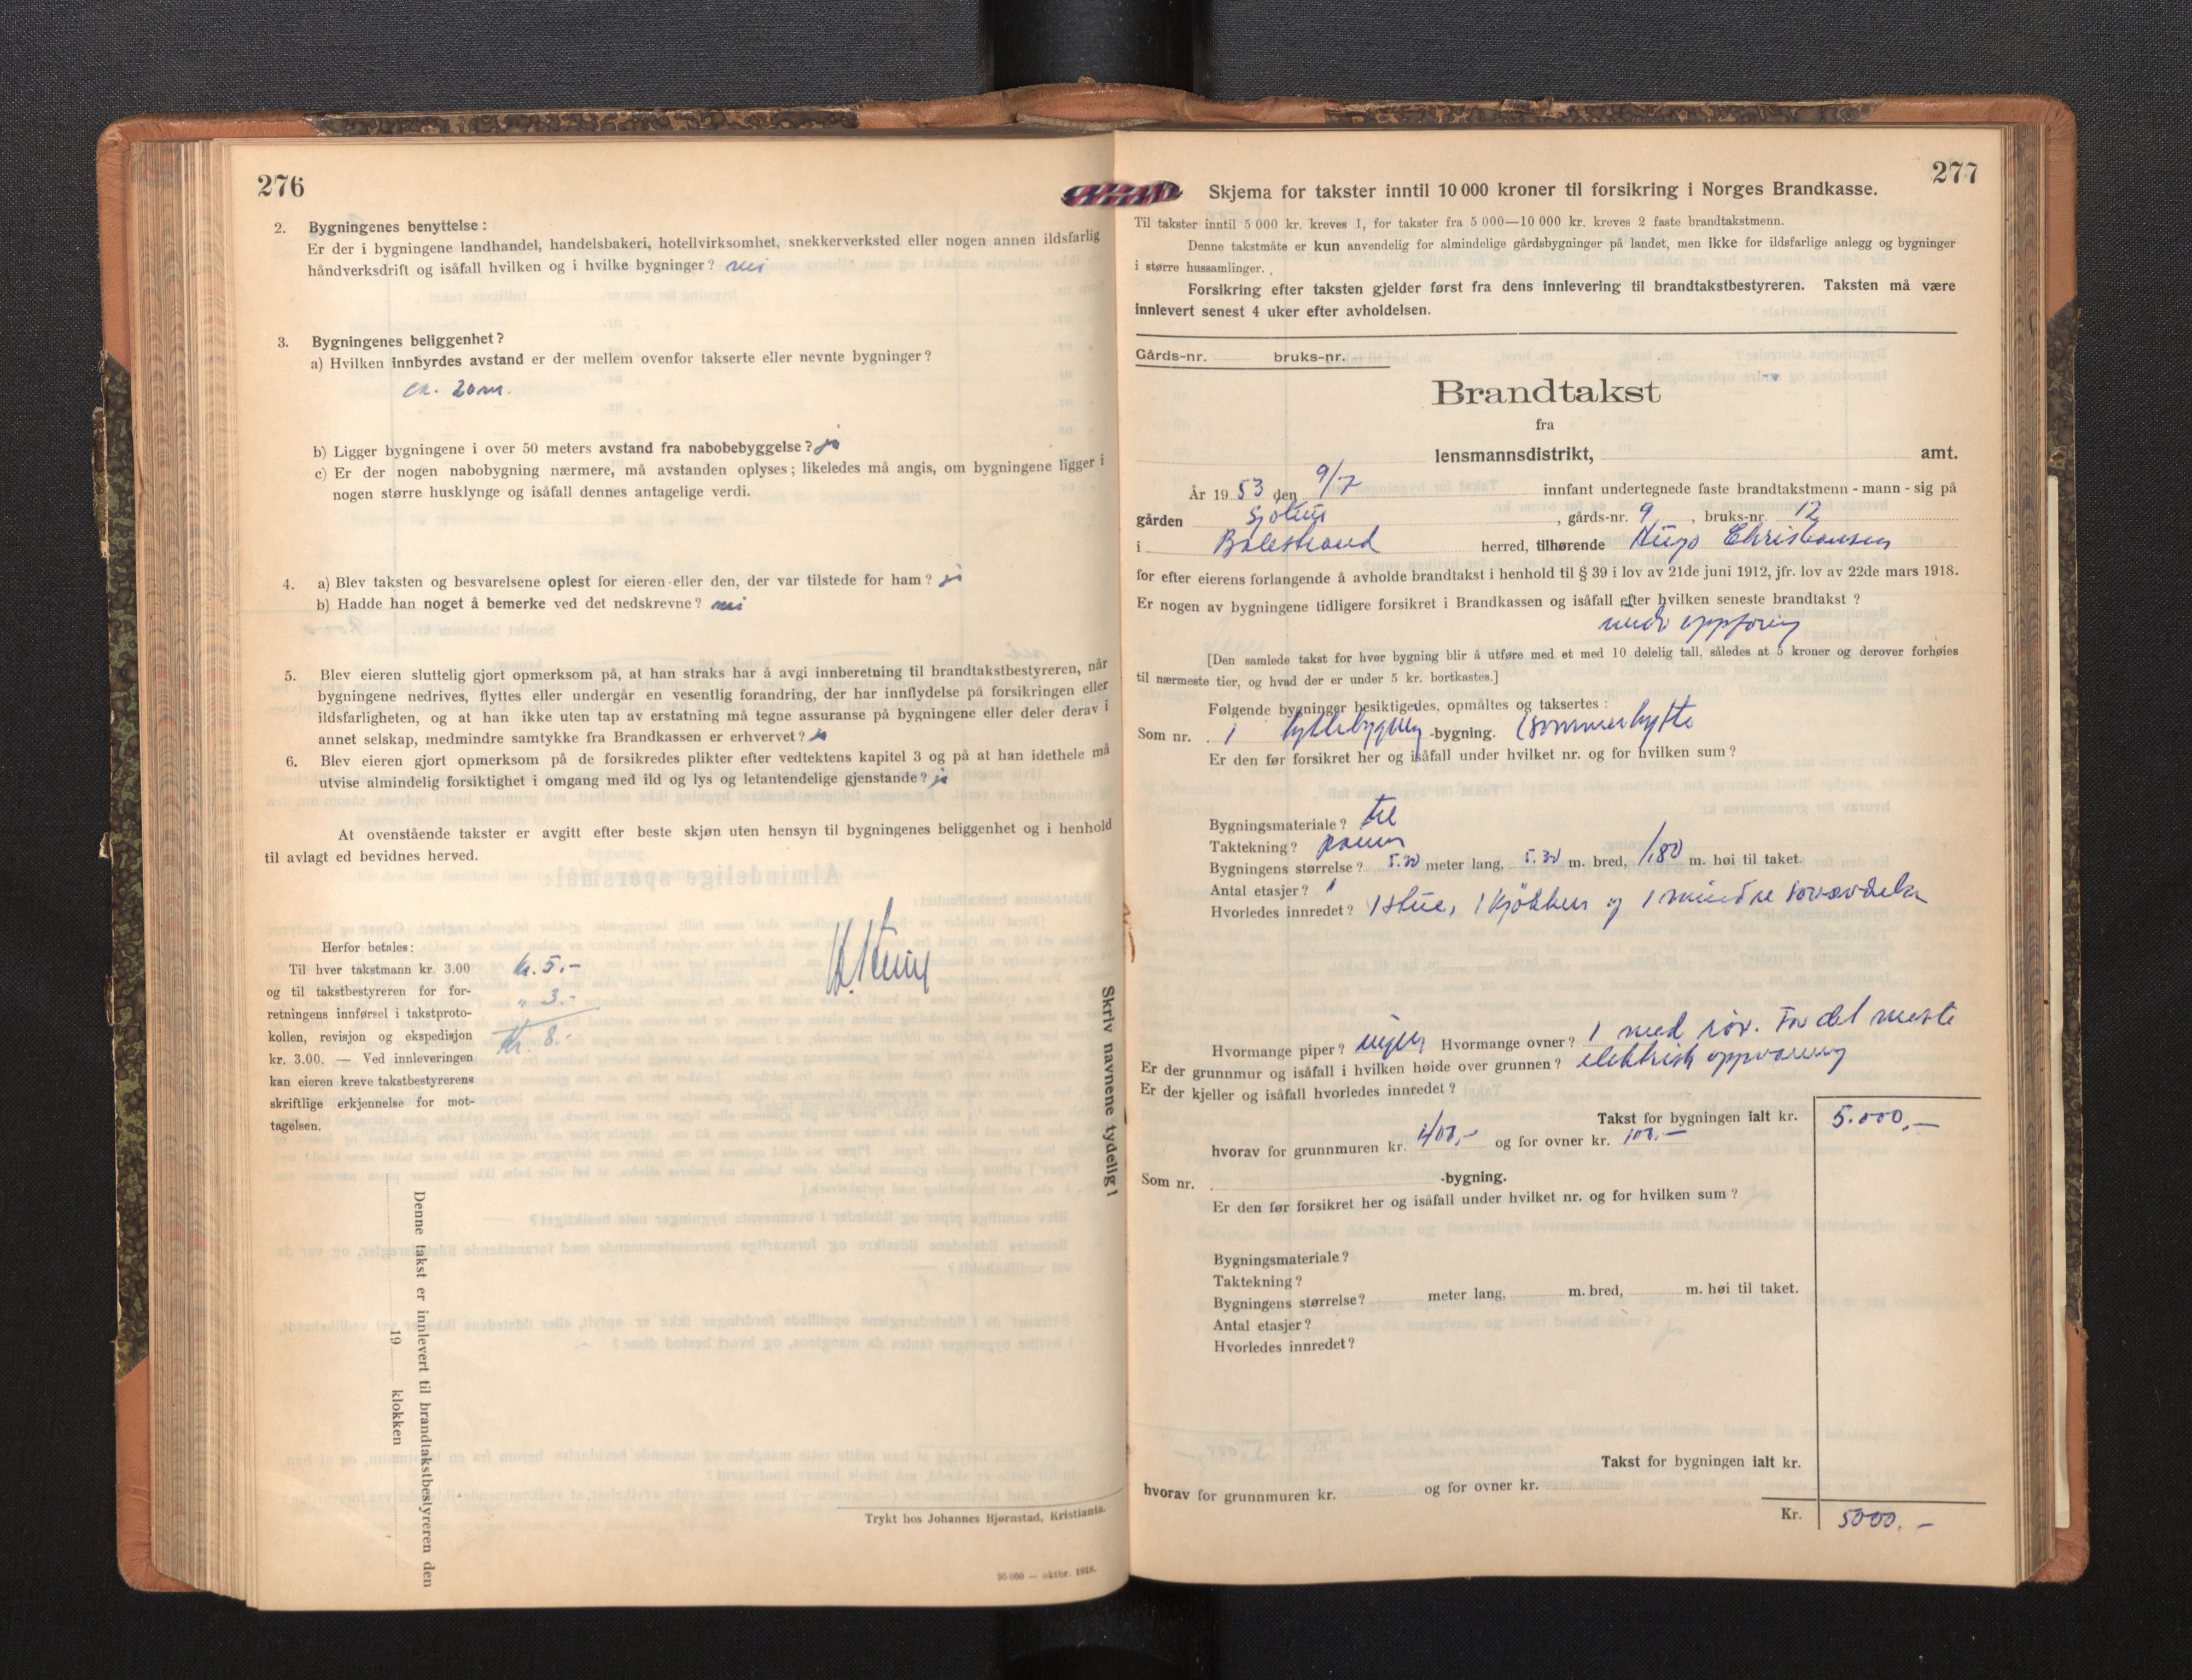 276
2. Bygningenes benyttelse:
Er der i bygningene landhandel, handelsbakeri, hotellvirksomhet, snekkerverksted eller nogen annen ildsfarlig
håndverksdrift og isåfall hvilken og i hvilke bygninger? nei
3. Bygningenes beliggenhet?
a) Hvilken innbyrdes avstand er der mellem ovenfor takserte eller nevnte bygninger?
ca. 20 m.
b) Ligger bygningene i over 50 meters avstand fra nabobebyggelse? ja
c) Er der nogen nabobygning nærmere, må avstanden oplyses; likeledes må angis, om bygningene ligger i
nogen større husklynge og isåfall dennes antagelige verdi.
4. a) Blev taksten og besvarelsene oplest for eieren eller den, der var tilstede for ham? ja
b) Hadde han noget å bemerke ved det nedskrevne? nei
5. Blev eieren sluttelig gjort opmerksom på, at han straks har å avgi innberetning til brandtakstbestyreren, når
bygningene nedrives, flyttes eller undergår en vesentlig forandring, der har innflydelse på forsikringen eller
ildsfarligheten, og at han ikke uten tap av erstatning må tegne assuranse på bygningene eller deler derav i
annet selskap, medmindre samtykke fra Brandkassen er erhvervet? ja
6. Blev eieren gjort opmerksom på de forsikredes plikter efter vedtektens kapitel 3 og på at han idethele må
utvise almindelig forsiktighet i omgang med ild og lys og letantendelige gjenstande? ja
At ovenstående takster er avgitt efter beste skjøn uten hensyn til bygningenes beliggenhet og i henhold
til avlagt ed bevidnes herved.
Herfor betales:
Til hver takstmann kr. 3.00 kr. 5.-
og til takstbestyreren for for- " 3.-
retningens innførsel i takstproto-
kollen, revisjon og ekspedisjon kr. 8.-
kr. 3.00. — Ved innleveringen
kan eieren kreve takstbestyrerens
skriftlige erkjennelse for mot-
tagelsen.
Skriv navnene tydelig!
Denne takst er innlevert til brandtakstbestyreren den
19 klokken
Trykt hos Johannes Bjørnstad, Kristiania.
95 000 — oktbr. 1918.
277
Skjema for takster inntil 10 000 kroner til forsikring i Norges Brandkasse.
Til takster inntil 5 000 kr. kreves 1, for takster fra 5 000—10 000 kr. kreves 2 faste brandtakstmenn.
Denne takstmåte er kun anvendelig for almindelige gårdsbygninger på landet, men ikke for ildsfarlige anlegg og bygninger
i større hussamlinger.
Forsikring efter taksten gjelder først fra dens innlevering til brandtakstbestyreren. Taksten må være
innlevert senest 4 uker efter avholdelsen.
Gårds-nr. bruks-nr.
Brandtakst
fra
lensmannsdistrikt, amt.
År 1953 den 9/7 innfant undertegnede faste brandtakstmenn - mann - sig på
gården , gårds-nr. 9, bruks-nr. 12
i Balestrand herred, tilhørende Hugo Christiansen
for efter eierens forlangende å avholde brandtakst i henhold til § 39 i lov av 21de juni 1912, jfr. lov av 22de mars 1918.
Er nogen av bygningene tidligere forsikret i Brandkassen og isåfall efter hvilken seneste brandtakst?
under oppføring
[Den samlede takst for hver bygning blir å utføre med et med 10 delelig tall, således at 5 kroner og derover forhøies
til nærmeste tier, og hvad der er under 5 kr. bortkastes.]
Følgende bygninger besiktigedes, opmåltes og taksertes:
Som nr. 1 hyttebygning -bygning. (sommerhytte
Er den før forsikret her og isåfall under hvilket nr. og for hvilken sum?
Bygningsmateriale? tre
Taktekning? panner
Bygningens størrelse? 5.30 meter lang, 5.30 m. bred, 1,80 m. høi til taket.
Antal etasjer? 1
Hvorledes innredet? 1 stue, 1 kjøkken og 1 mindre soveavdeling
Hvormange piper? ingen Hvormange ovner? 1 med rør. For det meste
Er der grunnmur og isåfall i hvilken høide over grunnen? elektrisk oppvarming
Er der kjeller og isåfall hvorledes innredet?
Takst for bygningen ialt kr. 5.000,—
hvorav for grunnmuren kr. 400,- og for ovner kr. 100.—
Som nr. -bygning.
Er den før forsikret her og isåfall under hvilket nr. og for hvilken sum?
Bygningsmateriale?
Taktekning?
Bygningens størrelse? meter lang, m. bred, m. høi til taket.
Antal etasjer?
Hvorledes innredet?
Takst for bygningen ialt kr.
hvorav for grunnmuren kr. og for ovner kr.
Kr. 5000.—